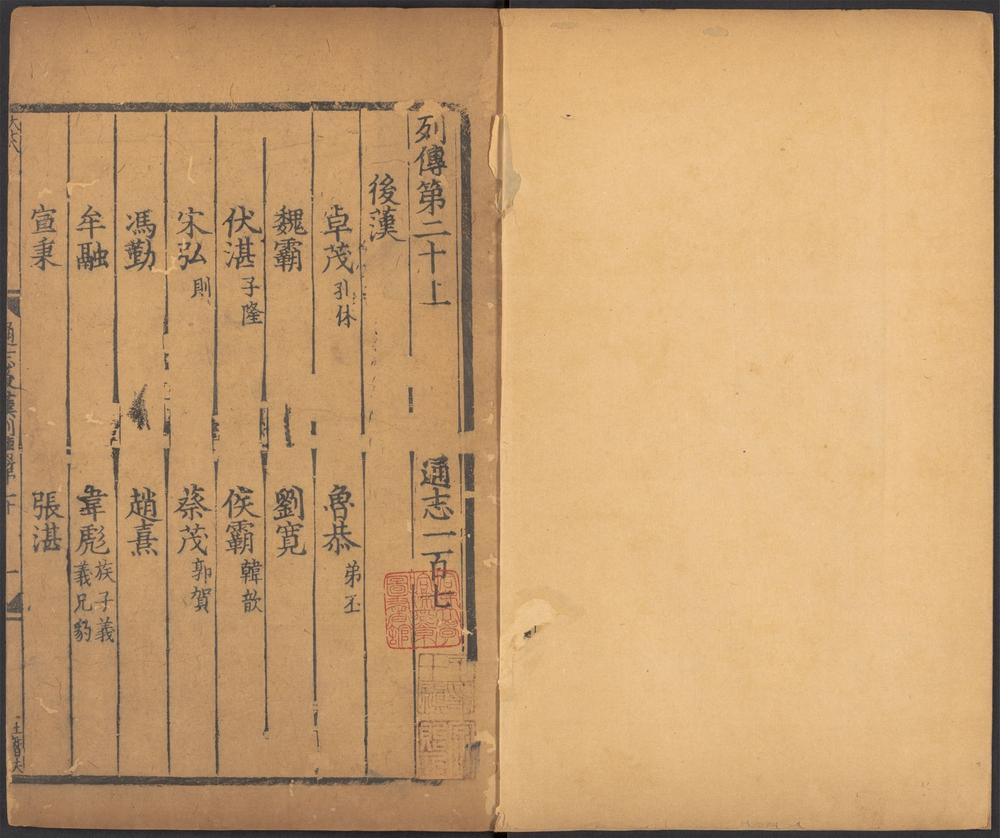 列傳第二十上 通志一百七
後漢
卓茂 孔休 魯恭 弟丕
魏霸 劉寬
伏湛 子隆 侯霸 韓歆
宋弘 則 蔡茂 郭賀
馮勤 趙熹
牟融 韋彪 族子義 義兄豹
宣秉 張湛